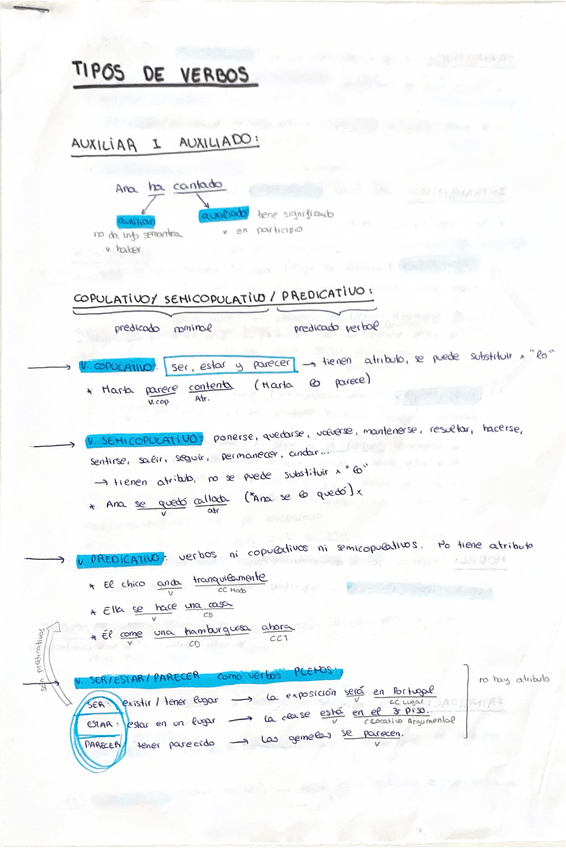 TIPOS DE VERBOS
AUXILIAR I AUXILIADO:
Ana ha cantado
auxiliar
auxiliado tiene significado
no da info semantica
v en participio
v haber
COPULATIVO/ SEMICOPULATIVO / PREDICATIVO:
predicado nominal predicado verbal
V. COPULATIVO: ser, estar y parecer → tienen atributo, se puede substituir x "lo"
* Marta parece contenta (Marta lo parece)
v.cop Atr.
V. SEMICOPULATIVO: ponerse, quedarse, volverse, mantenerse, resultar, hacerse,
sentirse, salir, seguir, permanecer, andar...
→ tienen atributo, no se puede substituir x "lo"
* Ana se quedó callada (*Ana se lo quedó) x
v atr
V. PREDICATIVO: verbos ni copulativos ni semicopulativos. No tiene atributo
* El chico anda tranquilamente
v CC Modo
* Ella se hace una casa
v CD
* Él come una hamburguesa ahora
v CD CCT
son predicativos
V. SER/ESTAR/PARECER como verbos PLENOS:
no hay atributo
SER: existir / tener lugar → La exposición será en Portugal
v CC Lugar
ESTAR: estar en un lugar → La clase está en el 3r piso.
v Locativo Argumental
PARECER: tener parecido → Las gemelas se parecen.
v